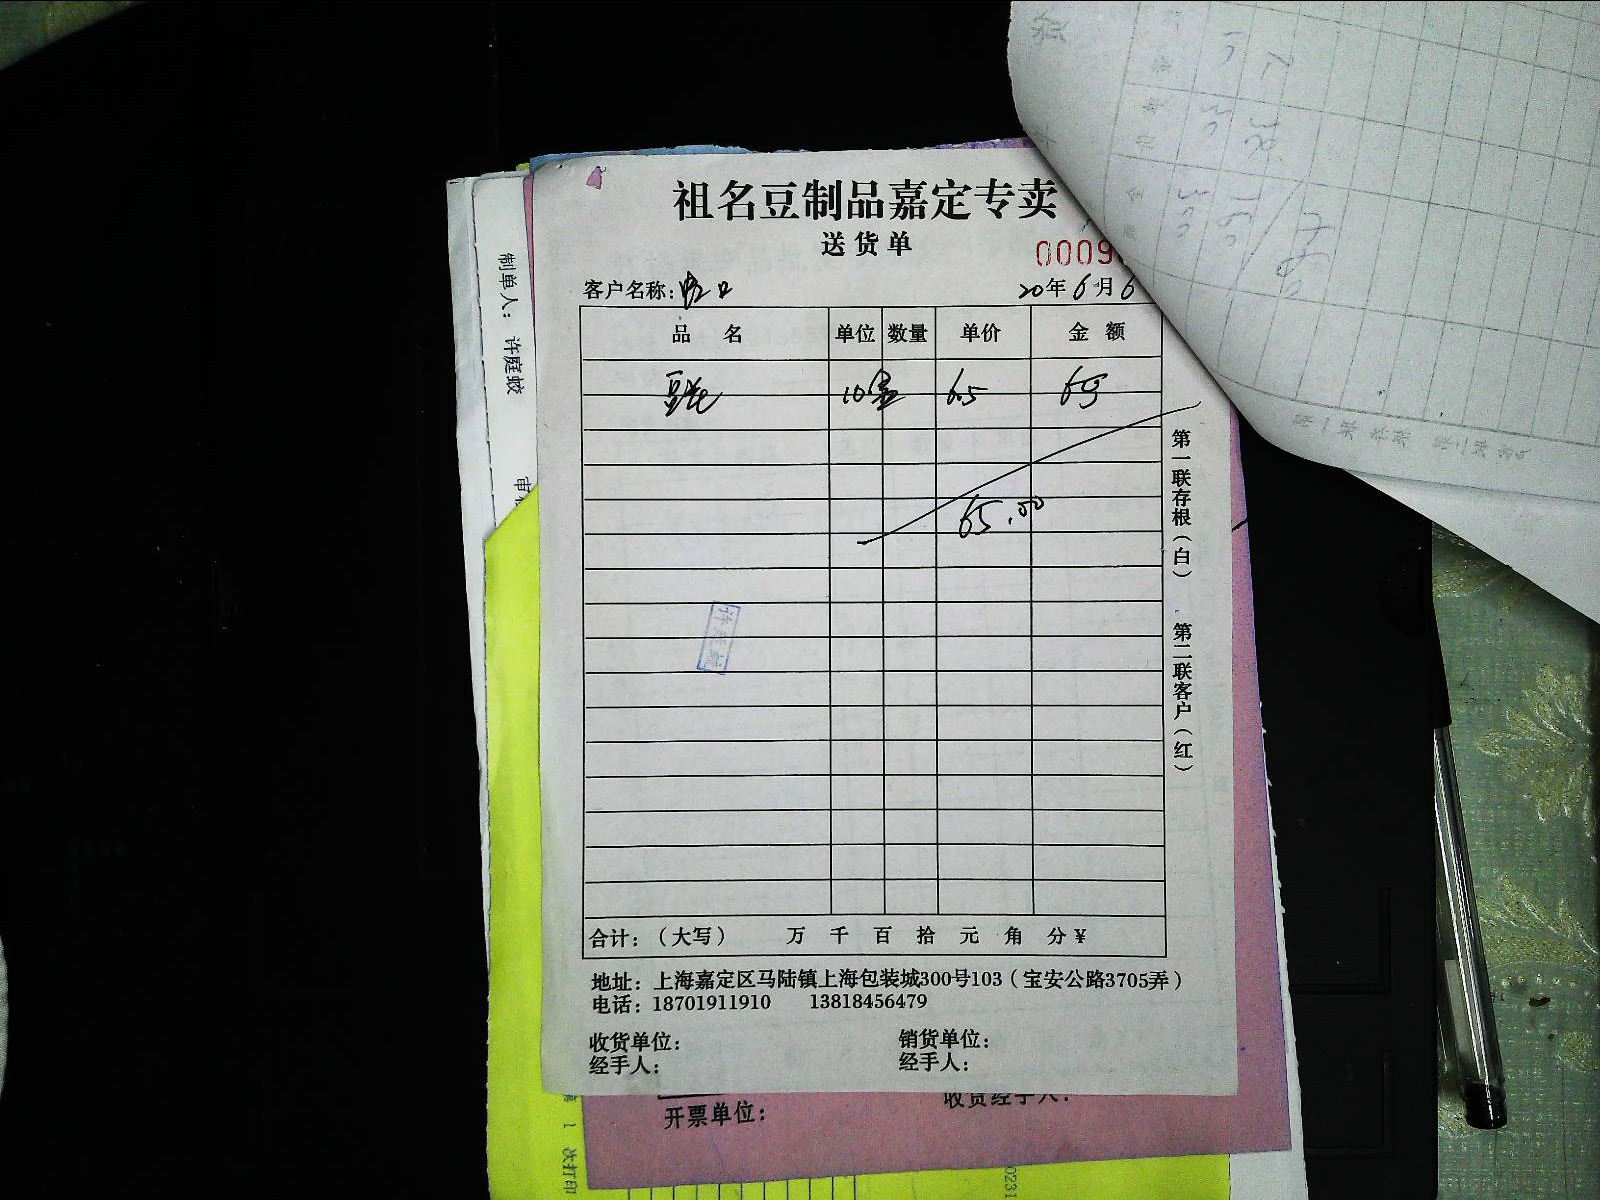 祖名豆制品嘉定专卖
送货单
0009
客户名称:
20年6月6
品 名 单位 数量 单价 金 额
10 6.5 65
65.00
合计:(大写) 万 千 百 拾 元 角 分¥
地址:上海嘉定区马陆镇上海包装城300号103(宝安公路3705弄)
电话:18701911910 13818456479
收货单位: 销货单位:
经手人: 经手人:
第一联存根(白) 第二联客户(红)
制单人: 许庭蛟
开票单位: 收货经手人:
1 次打印